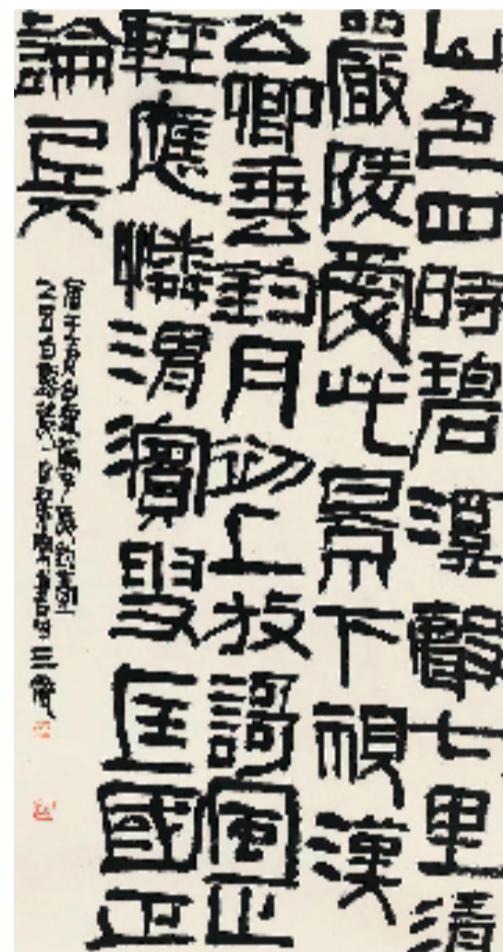 山色四時碧溪聲七里清
嚴陵愛此景下視漢
公卿垂釣月初上放謌風正
輕應憐渭濱叟匡國正
論兵